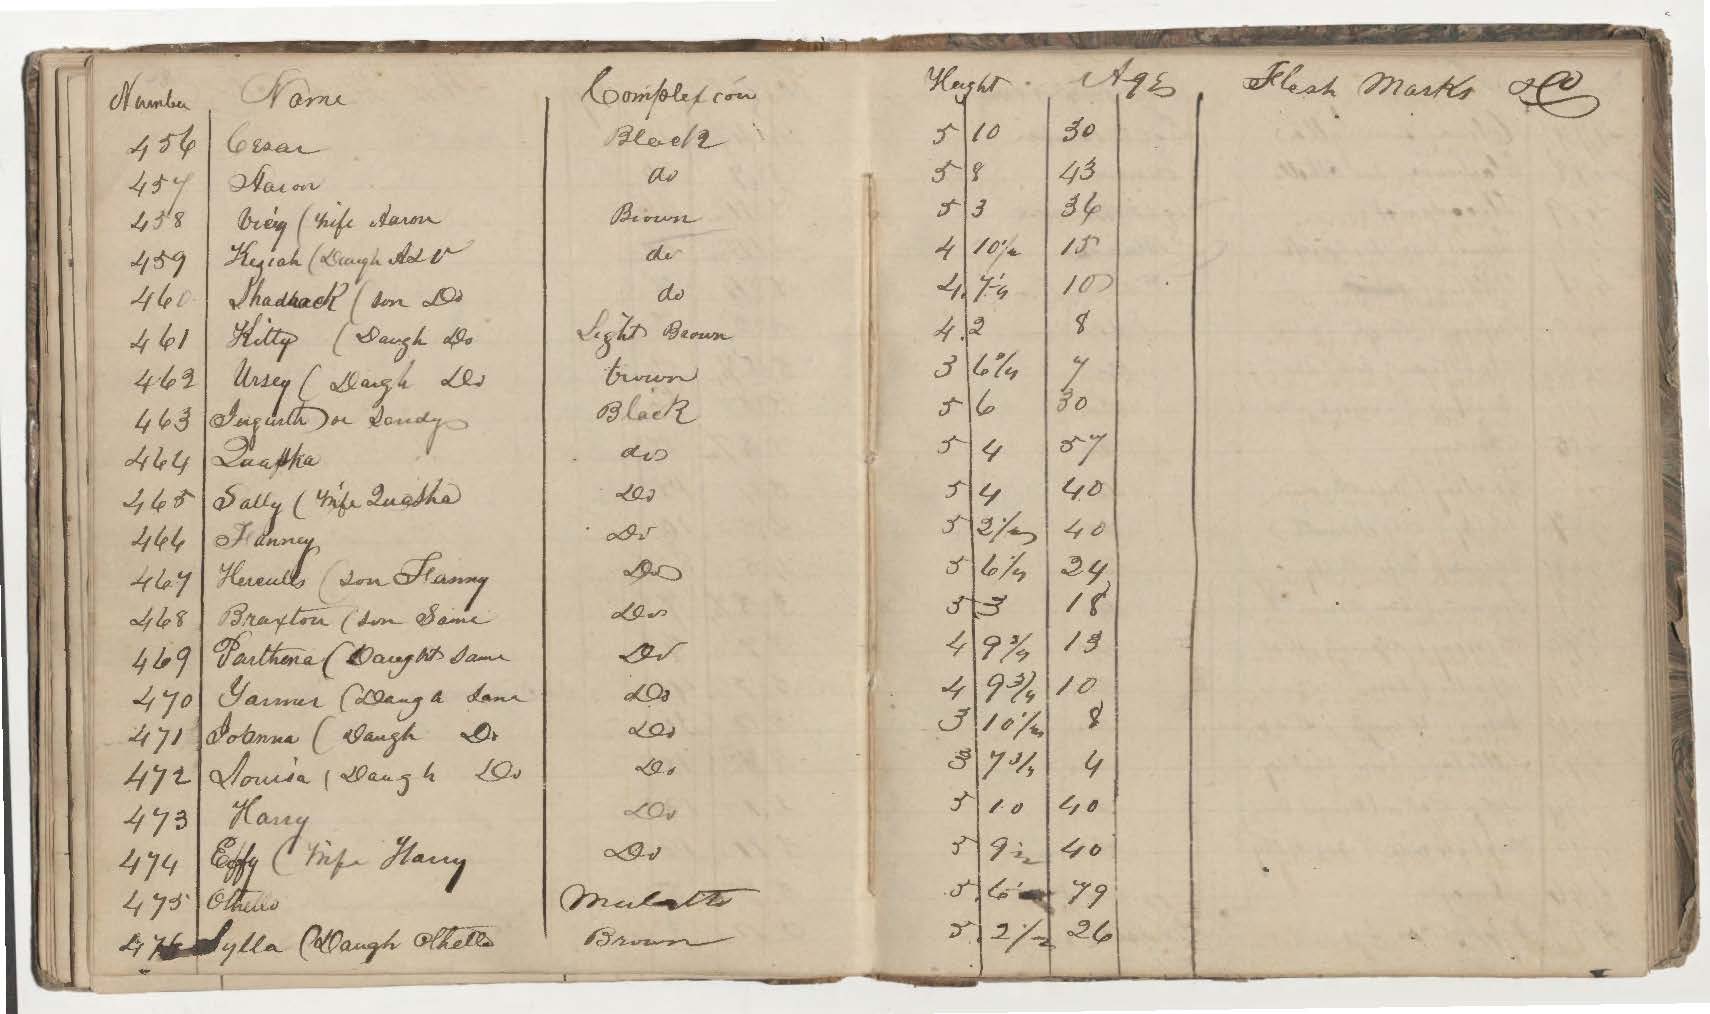 Number Name Complexion Height Age Flesh Marks &c
456 Cesar Black 5 10 30
457 Aaron do 5 8 43
458 (Wife Aaron Brown 5 3 36
459 Keziah (Daugh A & V do 4 10 1/2 15
460 Shadrack (son Do do 4 7 1/4 10
461 Kitty (Daugh Do Light Brown 4 2 8
462 Ursey (Daugh Do brown 3 6 3/4 7
463 or Sandy Black 5 6 30
464 Quasha do 5 4 57
465 Sally (Wife Quasha Do 5 4 40
466 Fanney Do 5 2 1/2 40
467 Hercules (son Fanny Do 5 6 1/4 24
468 Braxton (son Same Do 5 3 18
469 Parthena (Daught same Do 4 9 3/4 13
470 (Daug h same Do 4 9 3/4 10
471 JoAnna (Daugh Do Do 3 10 1/2 8
472 Louisa (Daugh Do Do 3 7 3/4 4
473 Harry Do 5 10 40
474 Effy (Wife Harry Do 5 9 1/2 40
475 Othello Mulatto 5 6 79
476 Sylla (Daugh Othello Brown 5 2 1/2 26